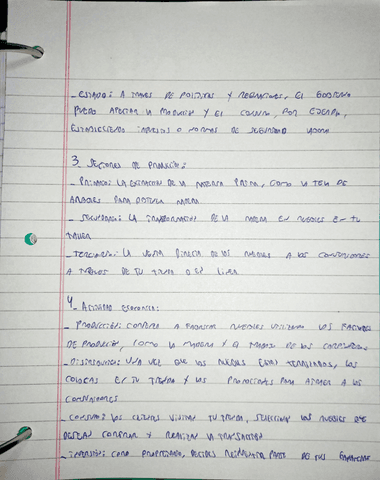 _ Estado: A través de políticas y regulaciones, el gobierno
puede afectar la producción y el consumo, por ejemplo,
estableciendo impuestos o normas de seguridad laboral
3. Sectores de producción:
_ Primario: La extracción de la materia prima, como la tala de
árboles para obtener madera
_ Secundario: La transformación de la madera en muebles en tu
taller
_ Terciario: La venta directa de los muebles a los consumidores
a través de tu tienda o en línea
4 _ Actividad económica:
_ Producción: Comienza a producir muebles utilizando los factores
de producción, como la madera y el trabajo de los carpinteros
_ Distribución: Una vez que los muebles están terminados, los
colocas en tu tienda y los promocionas para atraer a los
consumidores
_ Consumo: Los clientes visitan tu tienda, seleccionan los muebles que
desean comprar y realizan la transacción
_ Inversión: Como propietario, decides reinvertir parte de tus ganancias